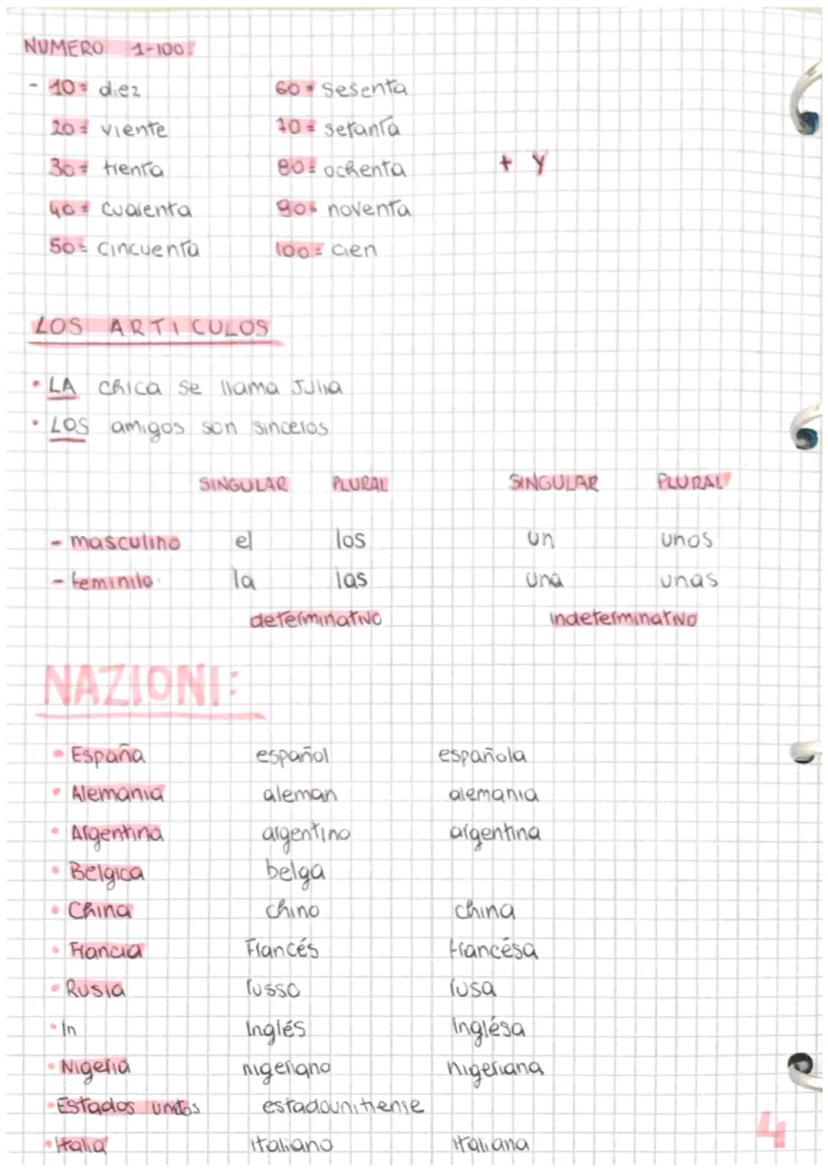 NUMERO 1-100:
- 10= diez 60= sesenta
20= viente 70= setanta
30= trenta 80= ochenta + Y
40= cuarenta 90= noventa
50= cincuenta 100= cien
LOS ARTICULOS
• LA chica se llama Julia
• LOS amigos son sinceros
SINGULAR PLURAL SINGULAR PLURAL
- masculino el los un unos
- feminile la las una unas
determinativo indeterminativo
NAZIONI:
• España español española
• Alemania aleman alemania
• Argentina argentino argentina
• Belgica belga
• China chino china
• Francia Francés francésa
• Rusia russo rusa
• In Inglés inglésa
• Nigeria nigeriano nigeriana
• Estados unitos estadounitiense
• Italia italiano italiana
4